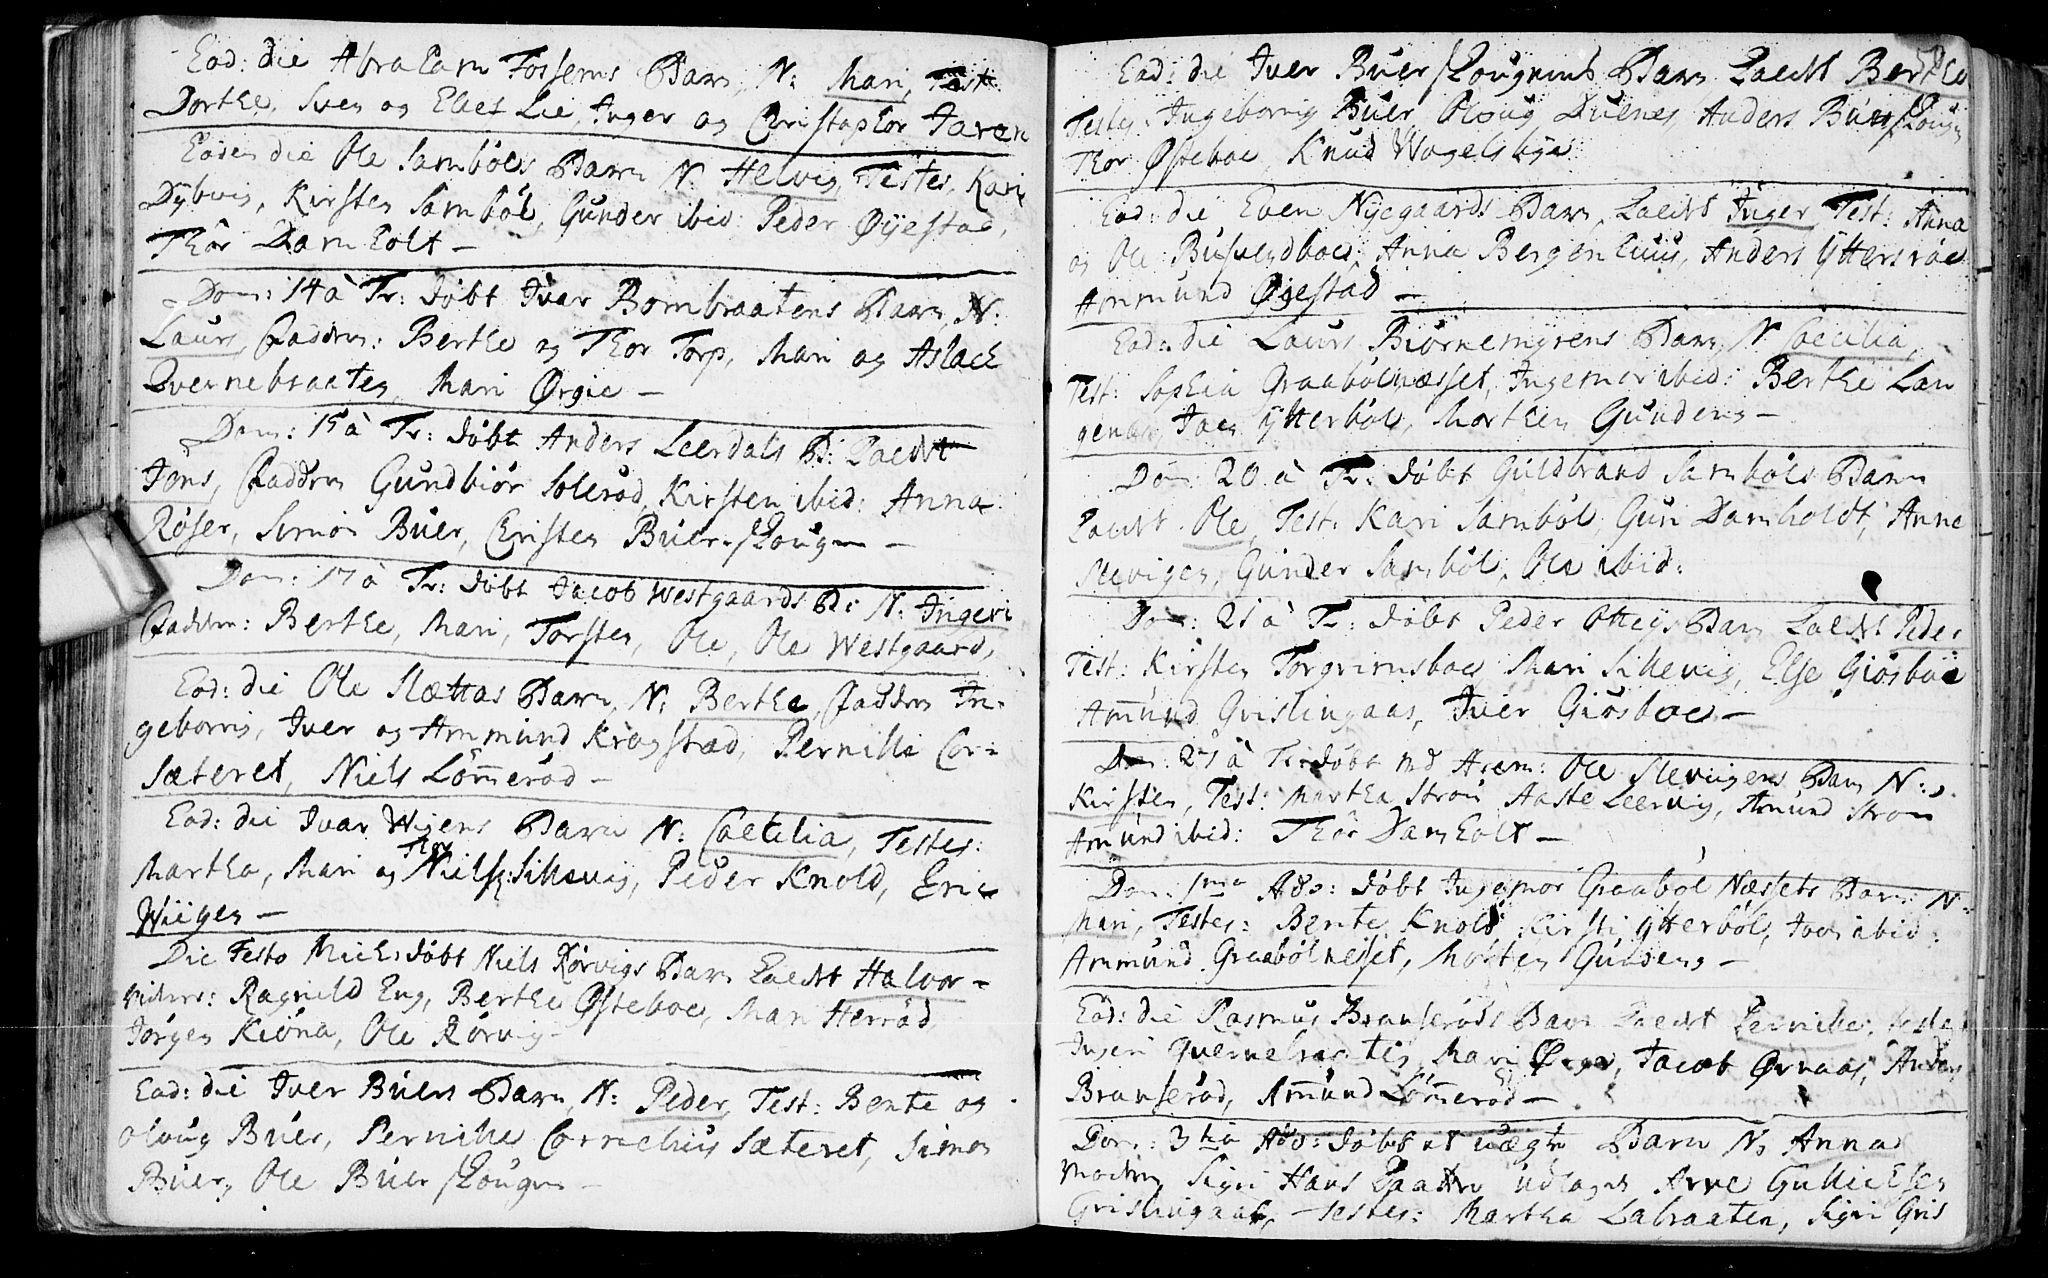 Ead: die Abraham Fossens Barn, N: Mari, Test
Dorthe, Sven og Elies Lie, Inger og Christopher Jaren
Eaden die Ole Sambøls Barn N: Helvig, Testes, Kari
Dybvig, Kirsten Sambøl, Gunder ibid: Peder Øyestad,
Thor Damholt —
Dom: 14 à Tr: døbt Iver Bombraatens Barn, N:
Laurs, Faddrer: Berthe og Thor Torp, Mari og Aslach
Qvernebraaten, Mari Ørgie —
Dom: 15 à Tr: døbt Anders Leerdals B: kaldt
Jens, Faddrer Gundbiør Solerød, Kirsten ibid: Anna
Røser, Simon Buer, Christen Buer-Skougen —
Dom: 17 à Tr: døbt Jacob Westgaards B: N: Ingeri
Faddrer: Berthe, Mari, Torsten, Ole, Ole Westgaard,
Ead: die Ole Slættas Barn, N: Berthe, Faddrer In-
geborrig, Iver og Ammund Krogstad, Pernille Cor=
Sæteret, Niels Lømmerød —
Ead: die Iver Wigens Barn N: Cæcilia, Testes:
Martha, Mari og Thor Niels: Sillevig, Peder Knold, Eric
Wiigen —
Die Festo Mich: døbt Niels Rørvigs Barn kaldt Halvor -
Vidner: Ragnild Eng, Berthe Østeboe, Mari Herrød
Jørgen Kiøna, Ole Rørvig
Ead: die Iver Buers Barn, N: Peder, Test: Bente og
Oloug Buer, Pernille Cornelius Sæteret, Simon
Buer, Ole Buer Skougen —
Ead: die Iver Buer Skougens Barn kaldt Berthe
Testes, Ingeborrig Buer, Oloug Duenes Anders Buer Skougen
Thor Østeboe, Knud Wogelsbye
Ead: die Even Nyegaards Barn, kaldt Inger, Test: Anna
og Ole Busundboe, Anna Bergenhuus, Anders Yttersrøe
Ammund Øyestad —
Ead: die Laurs Biørnemyrens Barn, N: Cæcilia,
Test: Sophia Graabølnæsset, Ingemor ibid: Berthe Lan
gender, Joen Ytterbøl, Morthen Gundeng —
Dom: 20 à Tr: døbt Guldbrand Sambøls Barn
kaldt Ole, Test: Kari Sambøl, Guri Damholdt, Anne
Slevigen, Gunder Sambøl, Ole ibid:
Dom: 21 à Tr: døbt Peder Otteys Barn kaldt Peder
Test: Kirsten Torgrimsboe, Mari Sillevig, Else Giøsbøe
Amund Grislingaas, Iver Giøsboe —
Dom: 21 à Tr: døbt ved Arem: Ole Slevigens Barn N:
Kirsten, Test: Martha Strøm, Aaste Leervig, Amund Strøm
Amund ibid: Thor Damholt —
Dom: 1ma Adv: døbt Ingemor Graabøl Næssets Barn N:
Mari, Testes: Bente Knold Kirsti Ytterbøl, Joen ibid:
Ammund Graabølnesset, Morten Gundeng —
Ead: die Rasmus Branserøds Barn kaldt Pernille, Testes
Ingeri Qvernebraaten, Mari Ørger, Jacob Ørnaas, Anders
Branserød, Amund Lømmerød —
Dom: 3tia Adv: døbt et uægte Barn N: Anna
Moder Sigri Hans Daatter udlagde Arne Gullichsen
Grislingaas, Testes: Martha Labraaten, Sigri Gris